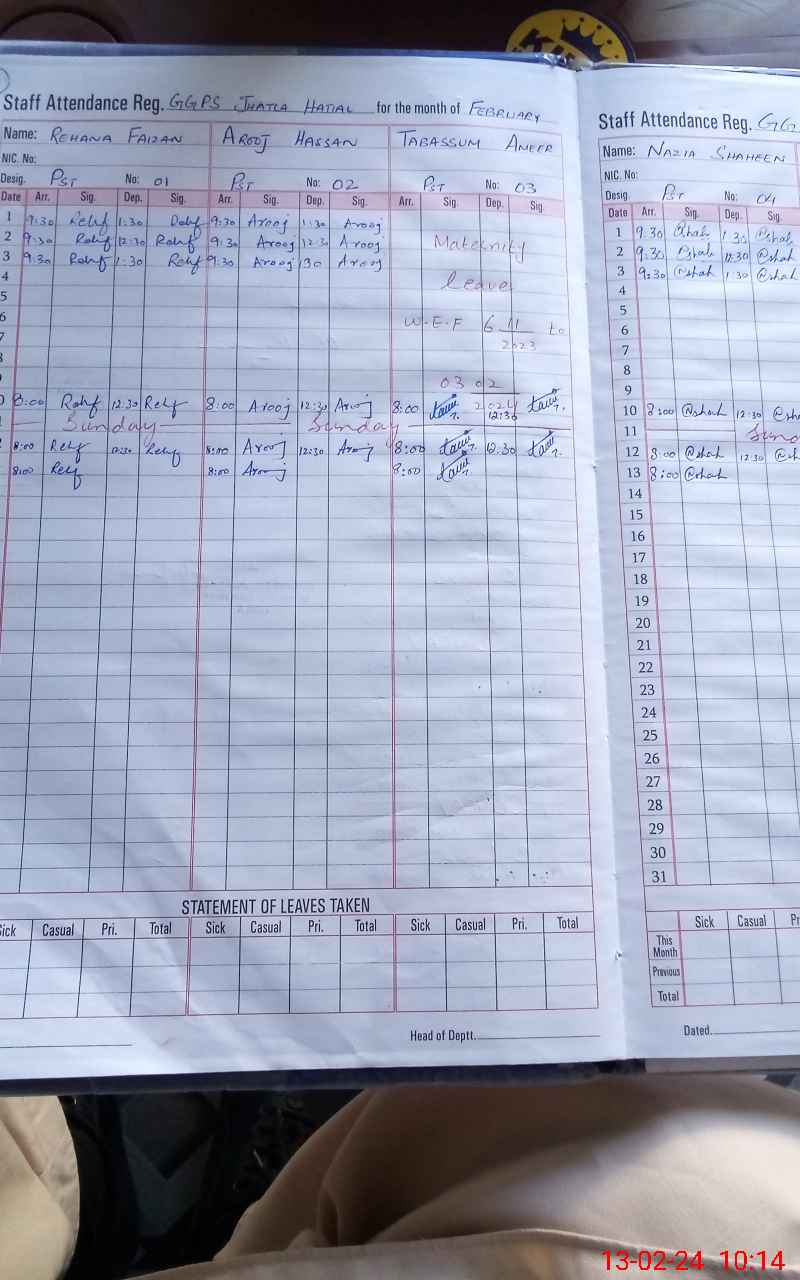 Staff Attendance Reg. GGPS JHATLA HATIAL for the month of FEBRUARY
Name: REHANA FAIZAN AROOJ HASSAN TABASSUM AMEER
NIC. No:
Desig. PST No: 01 PST No: 02 PST No: 03
Date Arr. Sig. Dep. Sig. Arr. Sig. Dep. Sig. Arr. Sig. Dep. Sig
1 9:30 1:30 9:30 Arooj 1:30 Arooj
2 9:30 12:30 9:30 Arooj 12:30 Arooj Maternity
3 9:30 1:30 9:30 Arooj 1:30 Arooj
4 leave
5
6 W.E.F 6 11 to
7 2023
8
03 02
8:00 12:30 8:00 Arooj 12:30 Arooj 8:00 2024 12:30
Sunday Sunday
8:00 12:30 8:00 Arooj 12:30 Arooj 8:00 12:30
8:00 8:00 Arooj 8:00
STATEMENT OF LEAVES TAKEN
Sick Casual Pri. Total Sick Casual Pri. Total Sick Casual Pri. Total
Head of Deptt.
Staff Attendance Reg. GG
Name: NAZIA SHAHEEN
NIC. No:
Desig. PST No: 04
Date Arr. Sig. Dep. Sig.
1 9:30 @shah 1:30 @shah
2 9:30 @shah 12:30 @shah
3 9:30 @shah 1:30 @shah
4
5
6
7
8
9
10 8:00 @shah 12:30 @sha
11 Sun
12 8:00 @shah 12:30 @sh
13 8:00 @shah
14
15
16
17
18
19
20
21
22
23
24
25
26
27
28
29
30
31
Sick Casual Pr
This Month
Previous
Total
Dated.
13-02-24 10:14